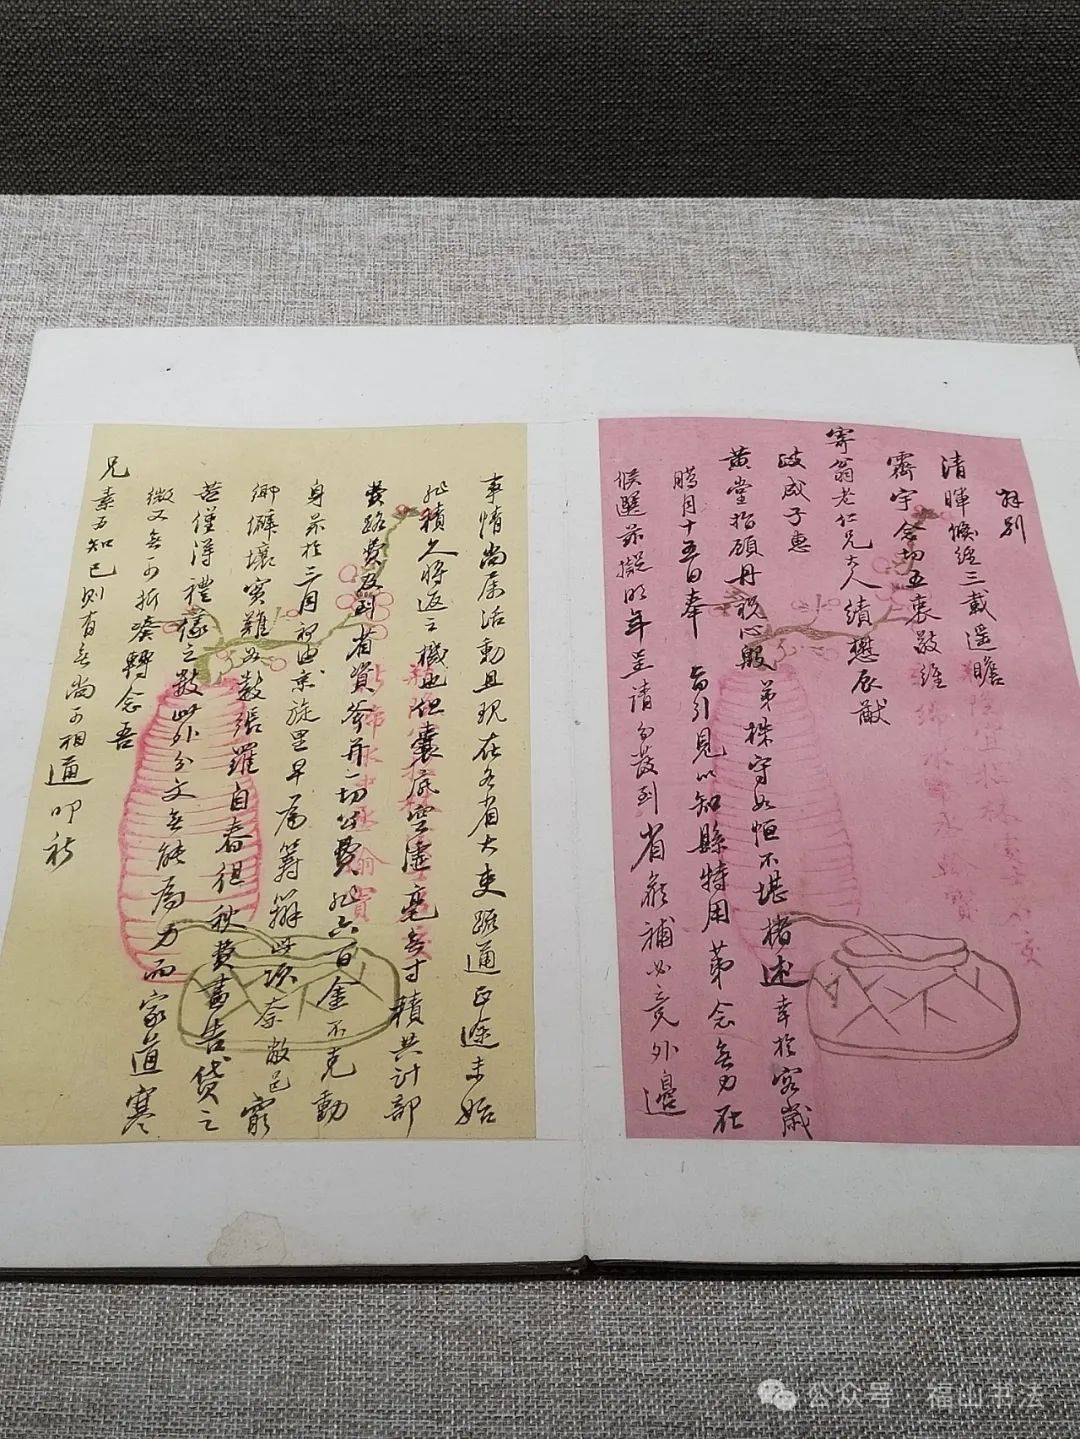 别
清暉倏經三載遥瞻
霽宇念切五衷敬維
寄翁老仁兄大人績懋辰猷
政成子惠
黄堂指顧丹
弟株守如恒不堪楮述幸於客歲
臘月十五日奉
旨引見以知縣特用弟念無力在
候選 擬明年呈請分發到省 補必竞外邊
事情尚属活動且现在各省大吏疏通正途未始
非積久将返之機也但囊底空虚毫無寸積共計部
費路費及到省資斧并一切公費非六百金不克動
身 於三月初由京旋里早為籌辦此项奈敝邑窮
鄉僻壤實難如數張羅自春徂秋费盡告貸之
苦僅得 之數此外分文無能為力而家道寒
微又無可折凑轉念吾
兄素为知己则有無尚可相通叩祈
公众号·福山书法